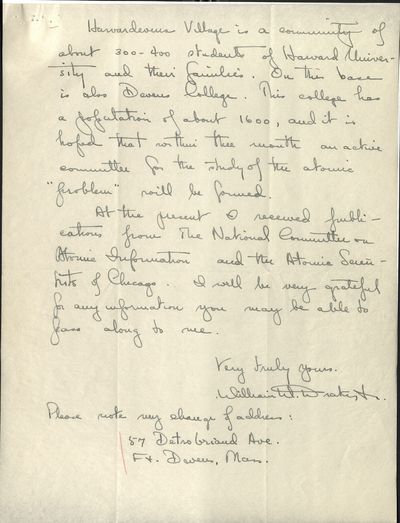 Harvardevens Village is a community of
about 300-400 students of Harvard Univer-
sity and their families. On this base
is also Devens College. This college has
a population of about 1600, and it is
hoped that within this month an active
committee for the study of the atomic
"problem" will be formed.
At the present I received publi-
cations from The National Committee on
Atomic Information and the Atomic Scien-
tists of Chicago. I will be very grateful
for any information you may be able to
pass along to me.
Very truly yours.
William W.
Please note my change of address:
57 Detrobriand Ave.
Ft. Devens, Mass.